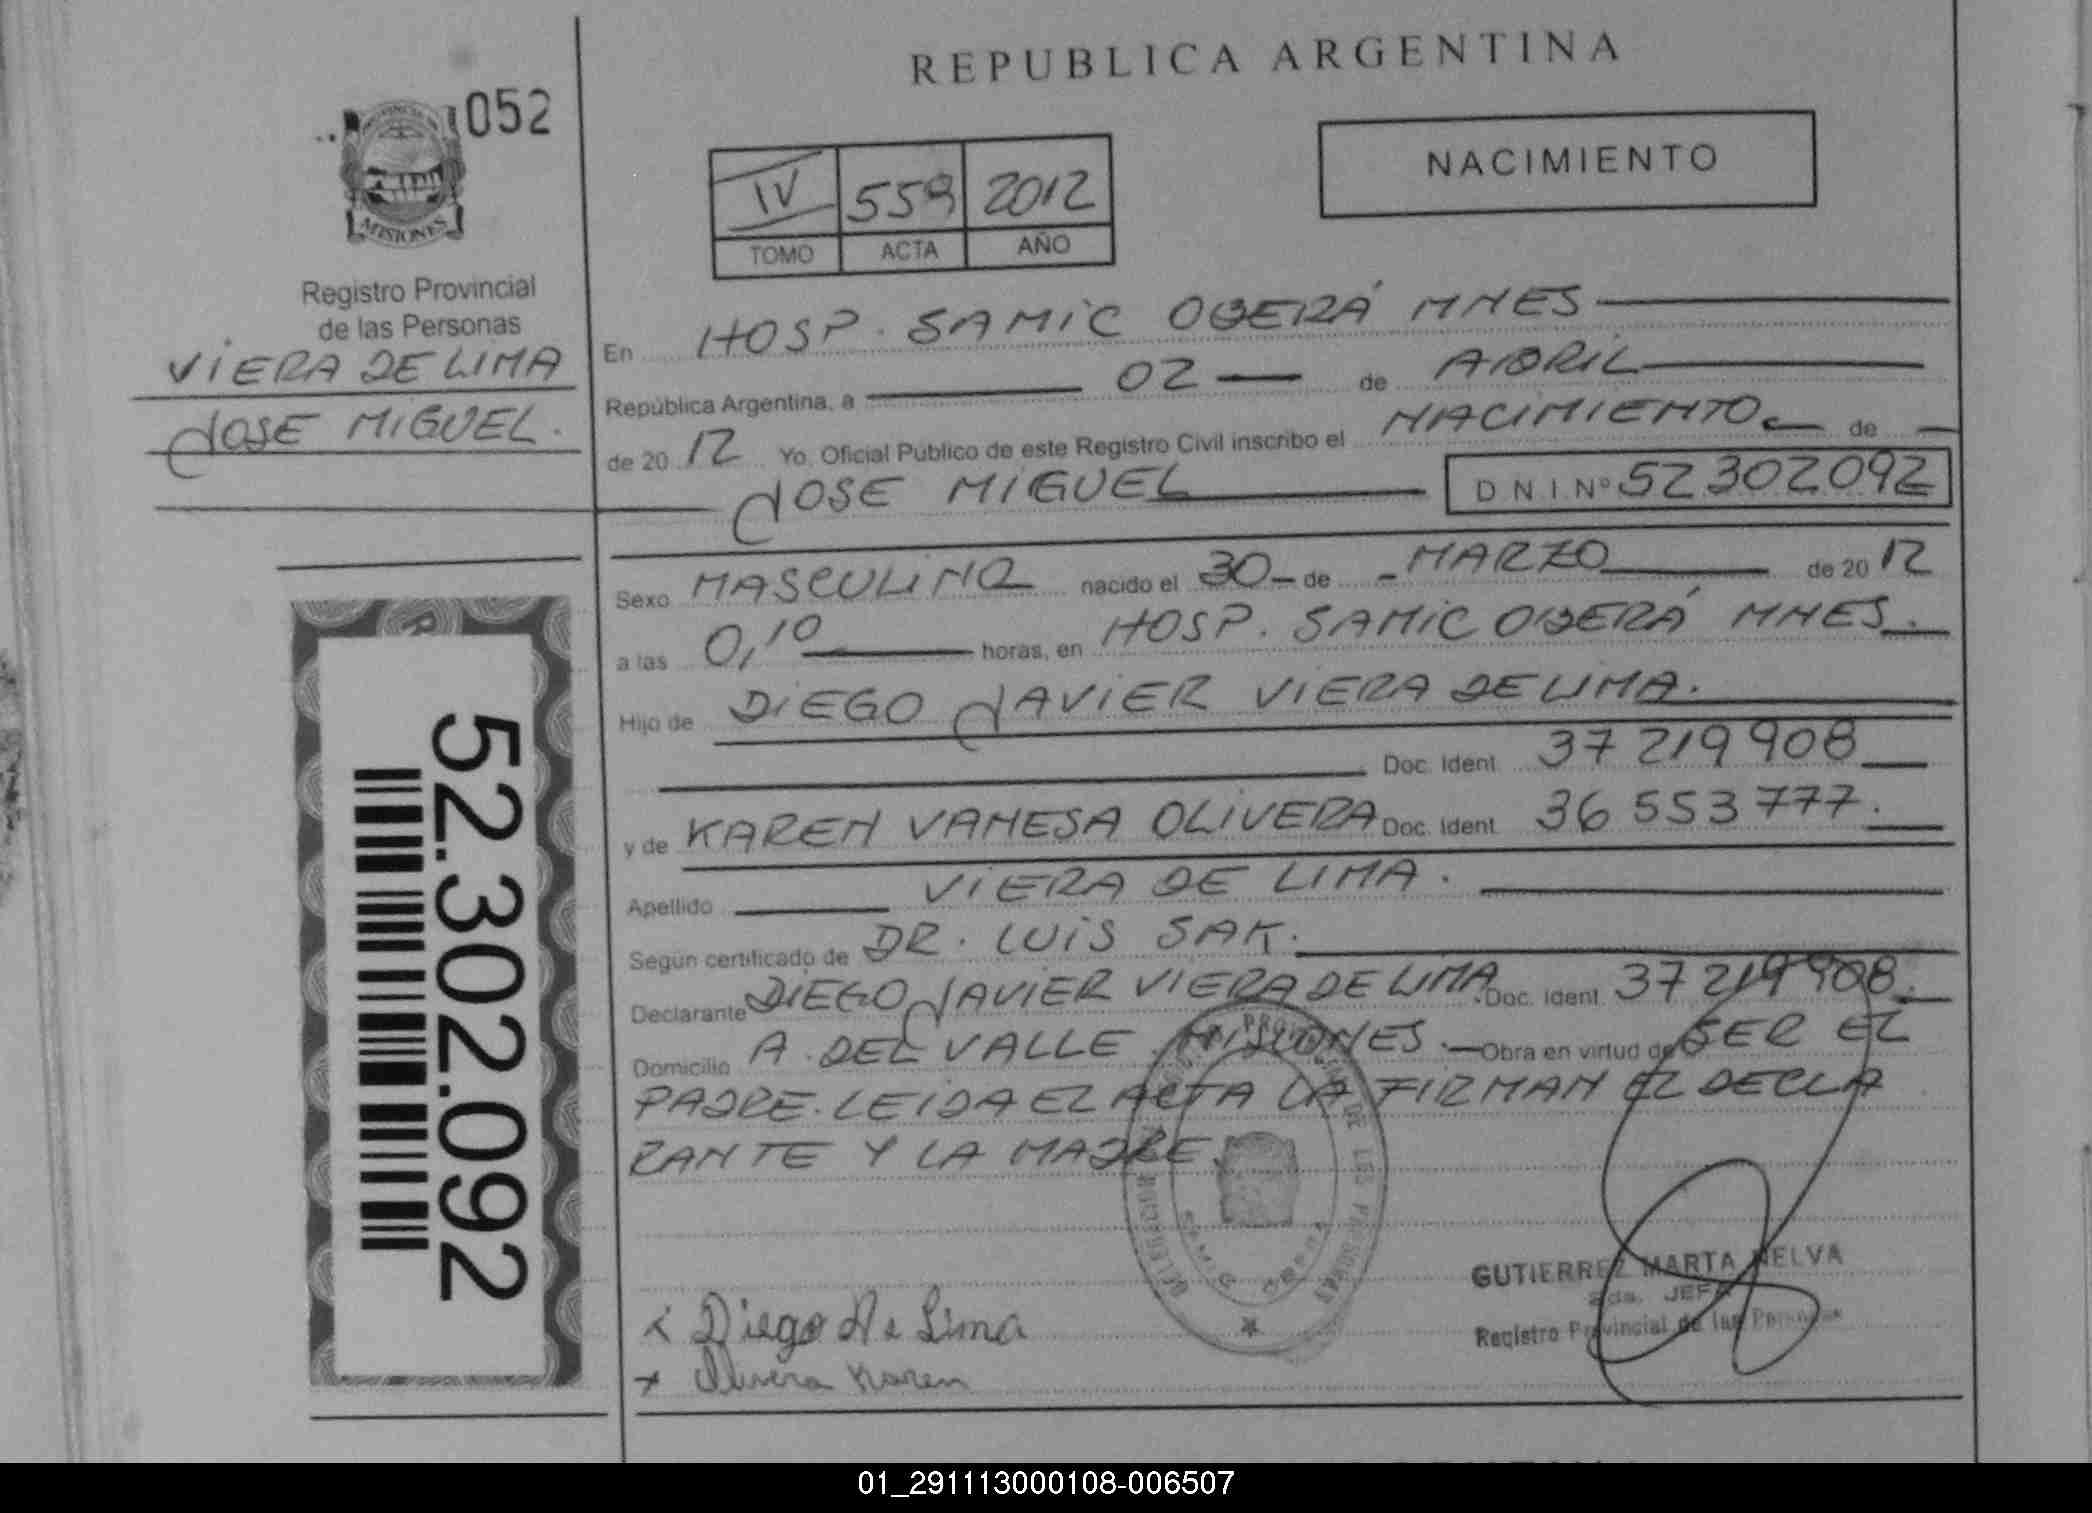 REPUBLICA ARGENTINA
052
MISIONES
Registro Provincial
de las Personas
VIERA DE LIMA
JOSE MIGUEL.
IV 559 2012
TOMO ACTA AÑO
NACIMIENTO
En HOSP. SAMIC OBERÁ MNES
República Argentina, a 02 de ABRIL
de 20 12 Yo, Oficial Público de este Registro Civil inscribo el NACIMIENTO de
JOSE MIGUEL D N I Nº 52 302 092
Sexo MASCULINO nacido el 30 de MARZO de 20 12
a las 0,10 horas, en HOSP. SAMIC OBERÁ MNES.
Hijo de DIEGO JAVIER VIERA DE LIMA.
Doc. Ident. 37 219 908
y de KAREN VANESA OLIVERA Doc. Ident. 36 553 777.
Apellido VIERA DE LIMA.
Según certificado de DR. LUIS SAK.
Declarante DIEGO JAVIER VIERA DE LIMA. Doc. Ident. 37 219 908.
Domicilio A. DEL VALLE MISIONES. Obra en virtud de SER EL
PADRE. LEIDA EL ACTA LA FIRMAN EL DECLA
RANTE Y LA MADRE.
52.302.092
GUTIERREZ MARTA NELVA
JEFA
Registro Provincial de las Personas
x Diego De Lima
x Olivera Karen
01_291113000108-006507